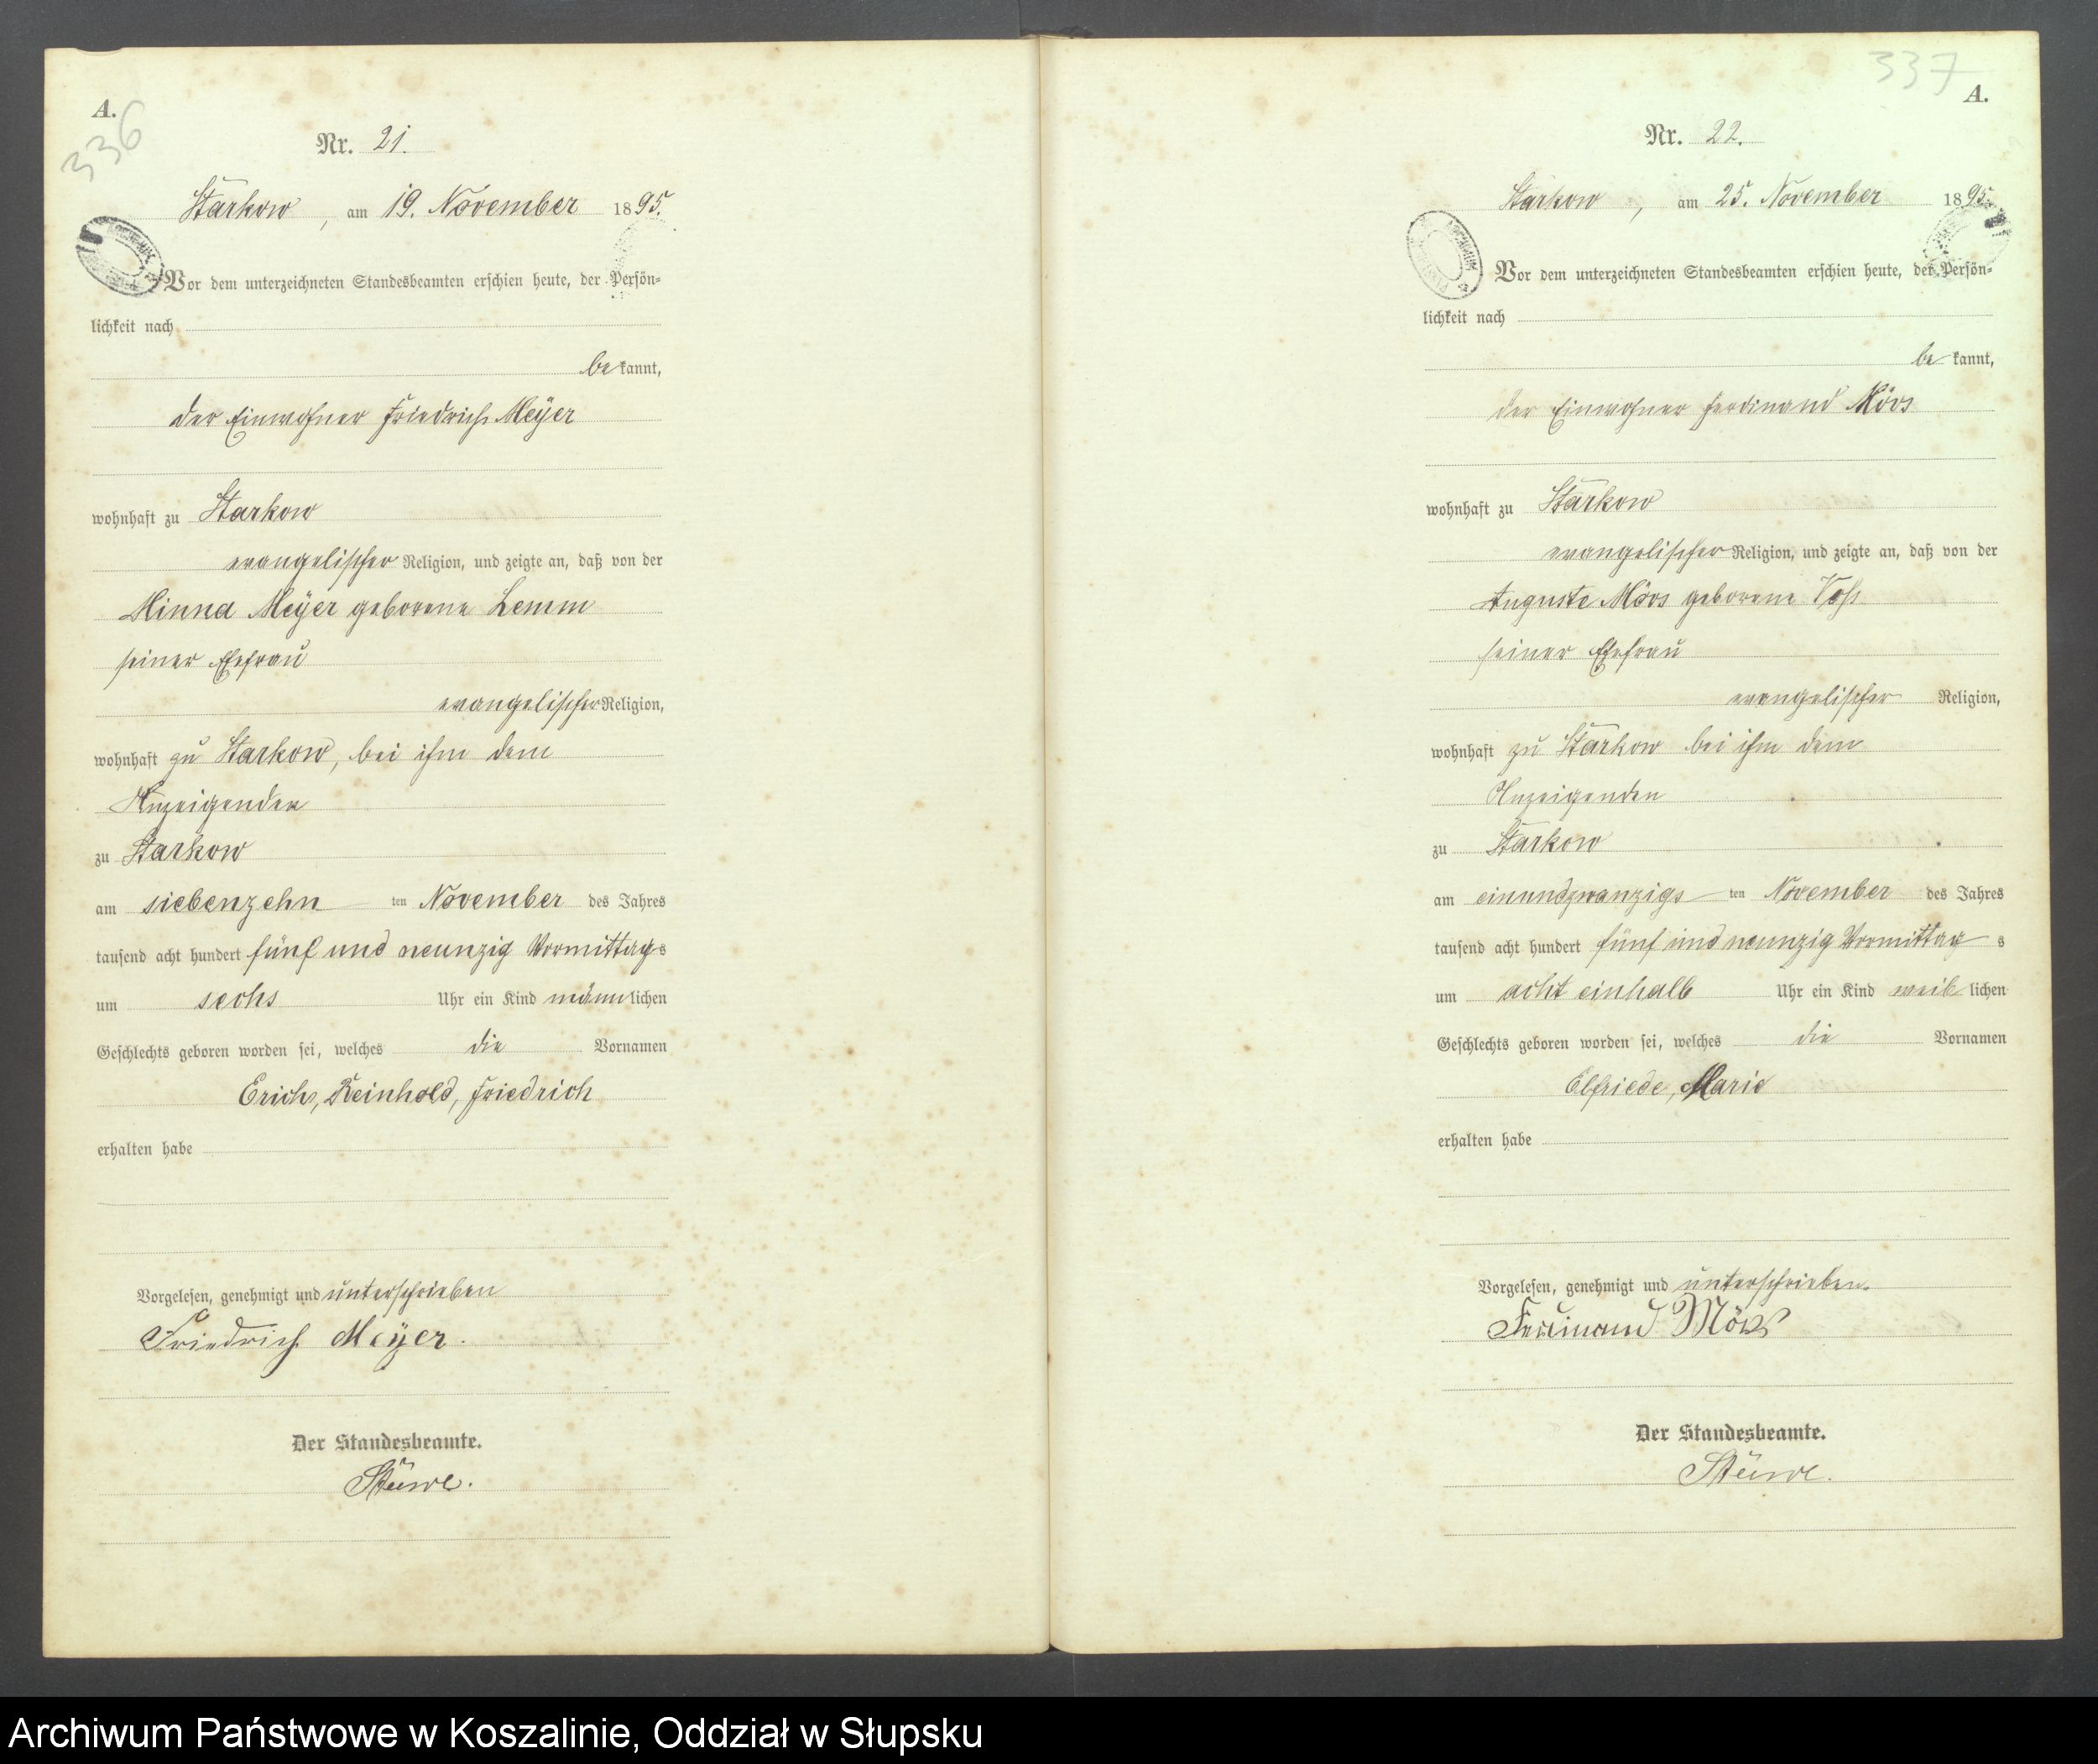 A.
336
Nr. 21.
Starkow, am 19. November 1895.
Vor dem unterzeichneten Standesbeamten erschien heute, der Persön-
lichkeit nach
bekannt,
der Einwohner Friedrich Meÿer
wohnhaft zu Starkow
evangelischer Religion, und zeigte an, daß von der
Minna Meÿer geborene Lemm
seiner Ehefrau
evangelischer Religion,
wohnhaft zu Starkow, bei ihm dem
Anzeigenden
zu Starkow
am siebenzehn ten November des Jahres
tausend acht hundert fünf und neunzig Vormittags
um sechs Uhr ein Kind männlichen
Geschlechts geboren worden sei, welches die Vornamen
Erich, Reinhold, Friedrich
erhalten habe
Vorgelesen, genehmigt und unterschrieben
Friedrich Meÿer.
Der Standesbeamte.
Stüwe.
337
A.
Nr. 22.
Starkow, am 25. November 1895.
Vor dem unterzeichneten Standesbeamten erschien heute, der Persön-
lichkeit nach
bekannt,
der Einwohner Ferdinand Mörs
wohnhaft zu Starkow
evangelischer Religion, und zeigte an, daß von der
Auguste Mörs geborene Voß
seiner Ehefrau
evangelischer Religion,
wohnhaft zu Starkow bei ihm dem
Anzeigenden
zu Starkow
am einundzwanzigs ten November des Jahres
tausend acht hundert fünf und neunzig Vormittags
um acht einhalb Uhr ein Kind weiblichen
Geschlechts geboren worden sei, welches die Vornamen
Elfriede, Marie
erhalten habe
Vorgelesen, genehmigt und unterschrieben.
Ferdinand Mörs
Der Standesbeamte.
Stüwe.
Archiwum Państwowe w Koszalinie, Oddział w Słupsku